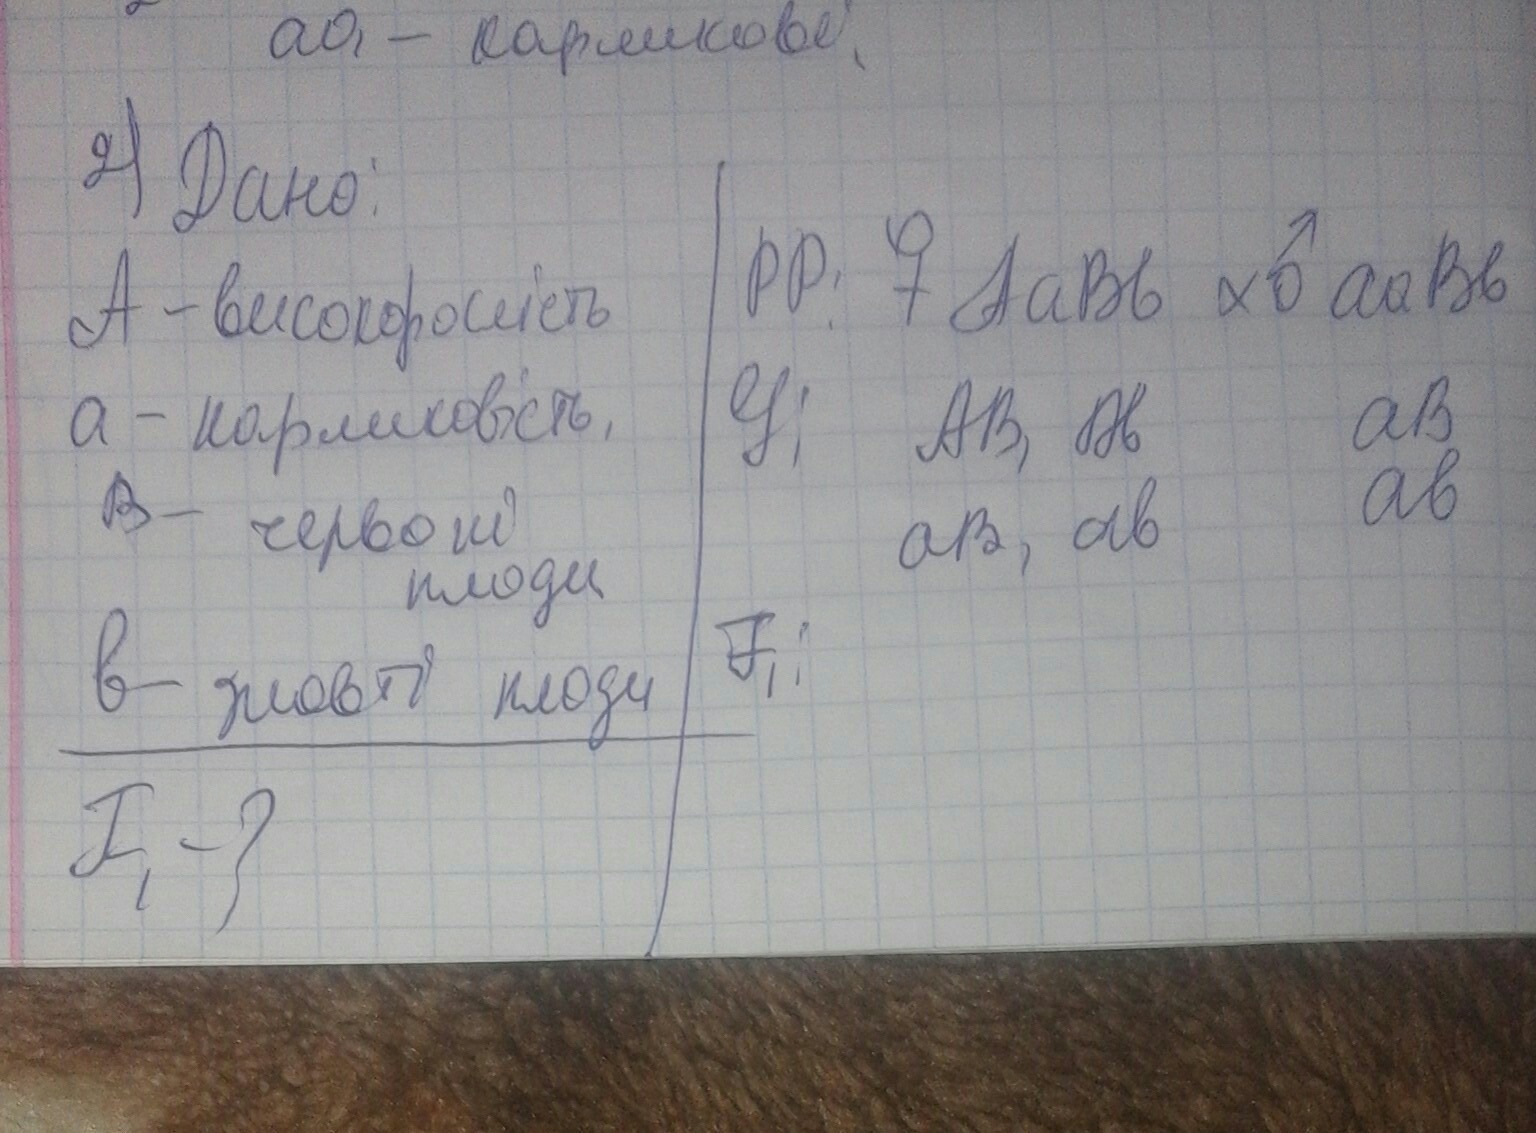 аа – карликові.
2) Дано:
А – високорослість
а – карликовість,
В – червоні
плоди
в – жовті плоди
F₁ – ?
РР: ♀ АаВв х ♂ ааВв
G: АВ, Ав аВ
аВ, ав ав
F₁: